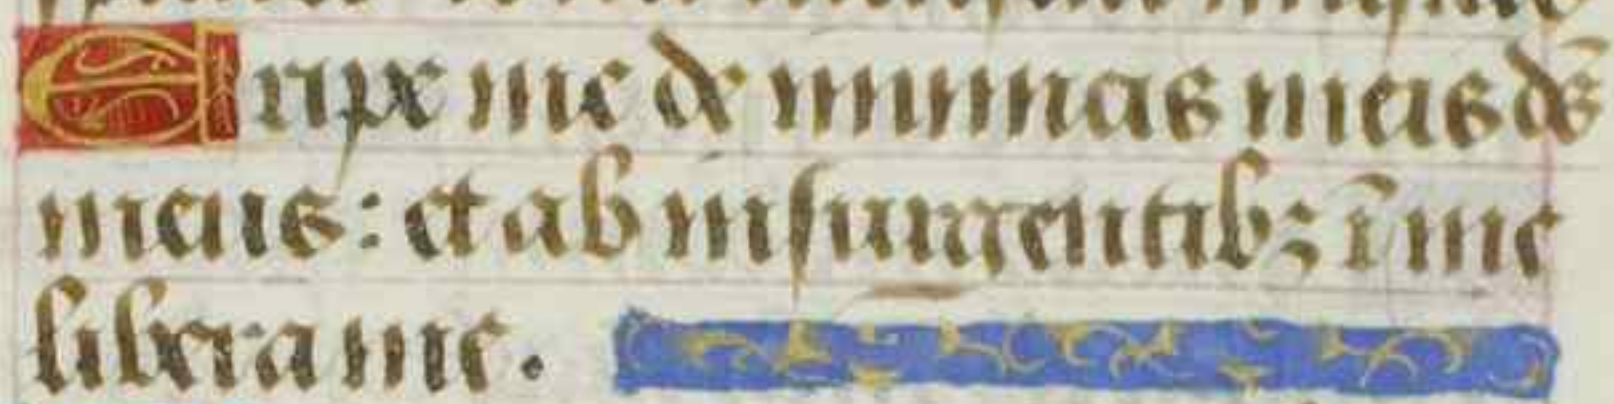 Eripe me de inimicis meis ds̄
meus: et ab insurgentibꝫ ī me
libera me.